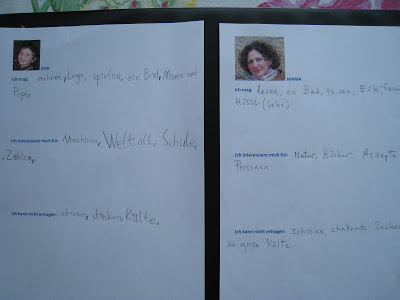 Ich mag: Lego, spielen, ein Bad, Mama und
Papa,
Ich interessiere mich für: Maschinen, Weltall, Schule,
, Zahlen,
Ich kann nicht ertragen: schreien, stinken, Kälte,
MAMA
Ich mag: lesen, ein Bad, reisen,
Küsse (Lobo)
Ich interessiere mich für: Natur, Bücher, Rezepte
Personen
Ich kann nicht ertragen: schreien, stinkende
die große Kälte